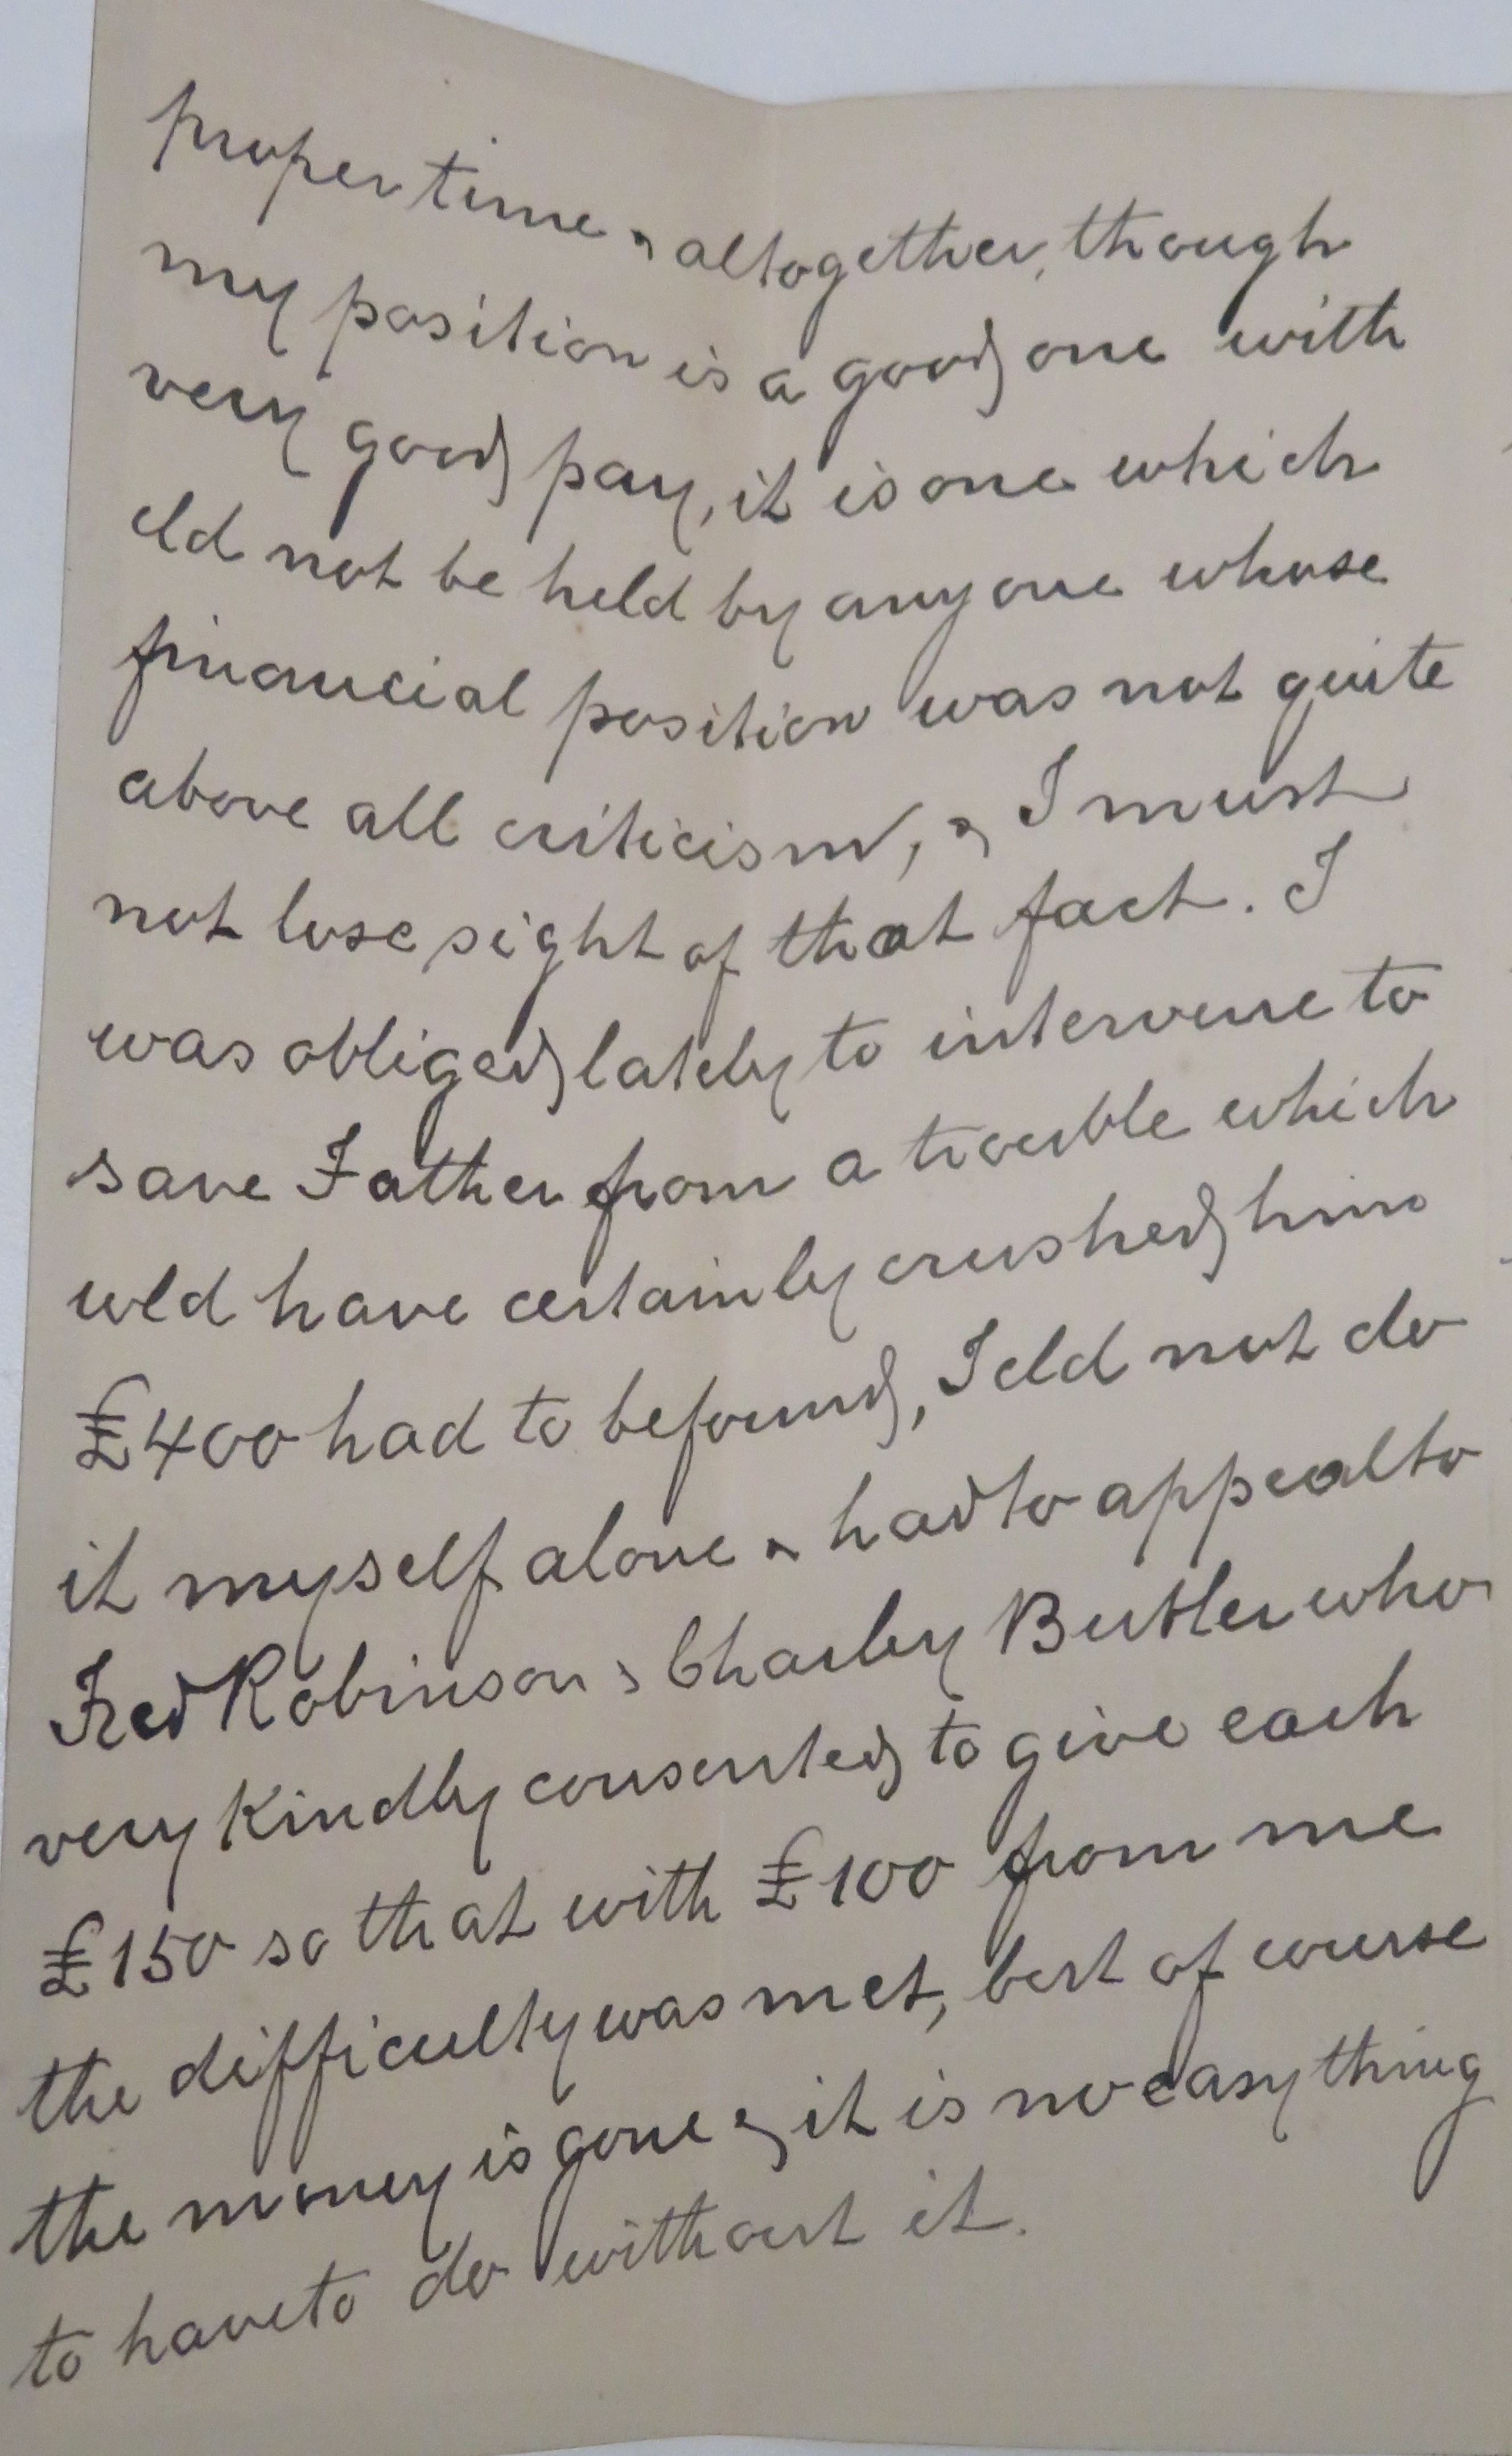 proper time & altogether, though
my position is a good one with
very good pay, it is one which
cld not be held by anyone whose
financial position was not quite
above all criticism, & I must
not lose sight of that fact. I
was obliged lately to intervene to
save Father from a trouble which
wld have certainly crushed him
£400 had to be found, I cld not do
it myself alone & had to appeal to
Fred Robinson & Charley Butler who
very kindly consented to give each
£150 so that with £100 from me
the difficulty was met, but of course
the money is gone & it is no easy thing
to have to do without it.